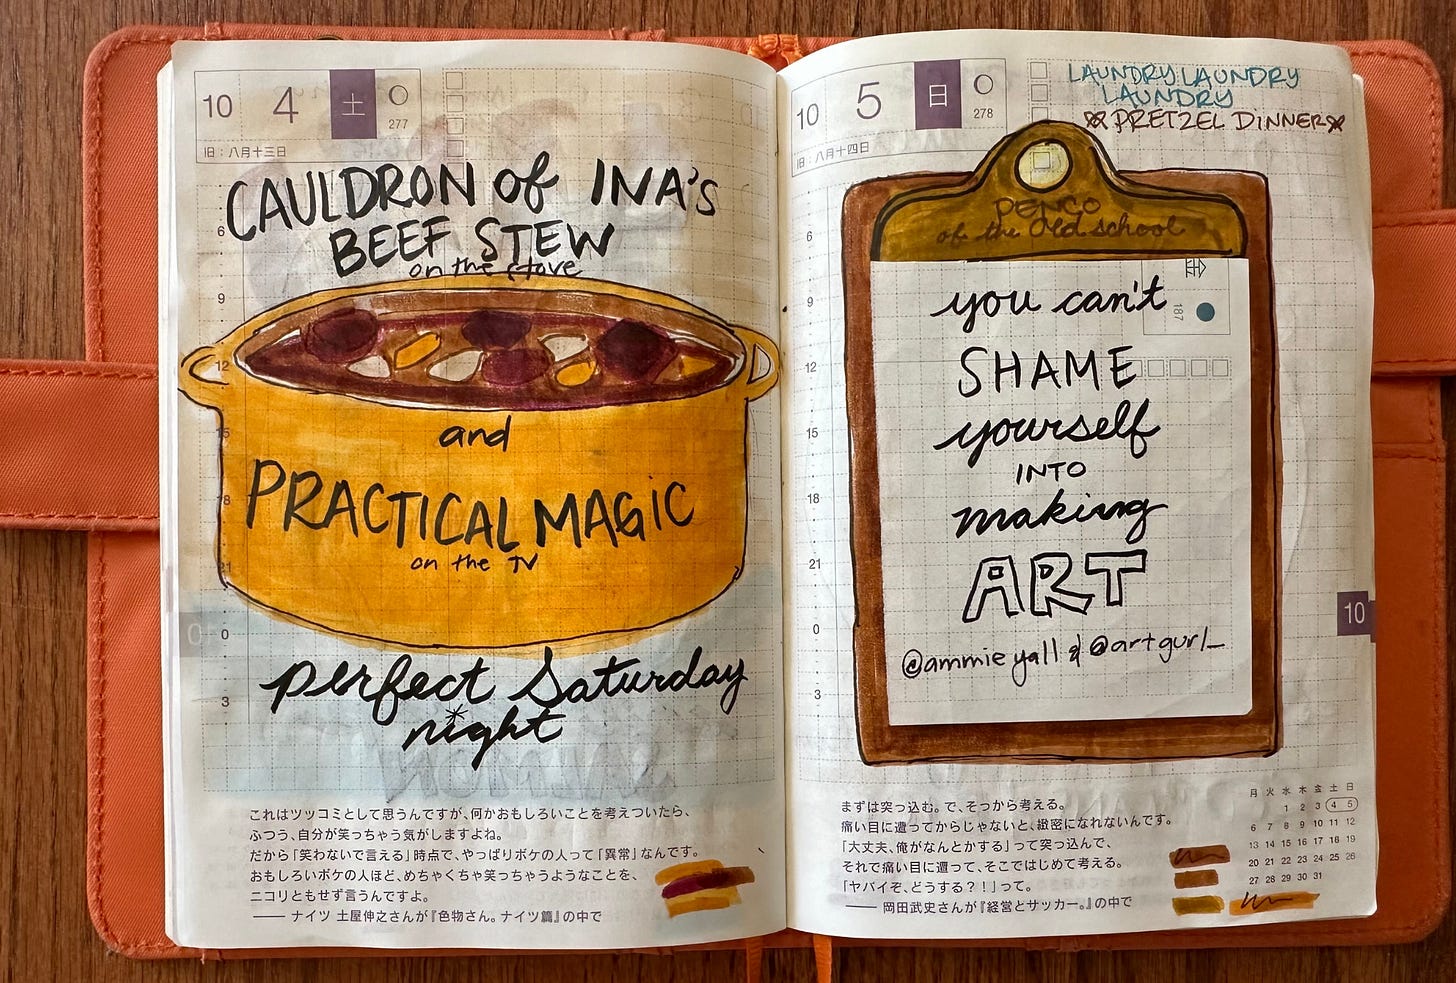 10 4 土
277
旧：八月十三日
CAULDRON of INA'S
BEEF STEW
on the stove
6
9
12
15
18
21
0
3
and
PRACTICAL MAGIC
on the TV
perfect Saturday
night
これはツッコミとして思うんですが、何かおもしろいことを考えついたら、
ふつう、自分が笑っちゃう気がしますよね。
だから「笑わないで言える」時点で、やっぱりボケの人って「異常」なんです。
おもしろいボケの人ほど、めちゃくちゃ笑っちゃうようなことを、
ニコリともせず言うんですよ。
―― ナイツ 土屋伸之さんが『色物さん。ナイツ篇』の中で
10 5 日
278
旧：八月十四日
LAUNDRY LAUNDRY
LAUNDRY
PRETZEL DINNER
PENCO
of the Old School
6
9
12
15
18
21
0
3
187
you can't
SHAME
yourself
INTO
making
ART
@ammieyall & @artgurl_
10
まずは突っ込む。で、そっから考える。
痛い目に遭ってからじゃないと、緻密になれないんです。
「大丈夫、俺がなんとかする」って突っ込んで、
それで痛い目に遭って、そこではじめて考える。
「ヤバイぞ、どうする？！」って。
―― 岡田武史さんが『経営とサッカー。』の中で
月 火 水 木 金 土 日
1 2 3 4 5
6 7 8 9 10 11 12
13 14 15 16 17 18 19
20 21 22 23 24 25 26
27 28 29 30 31